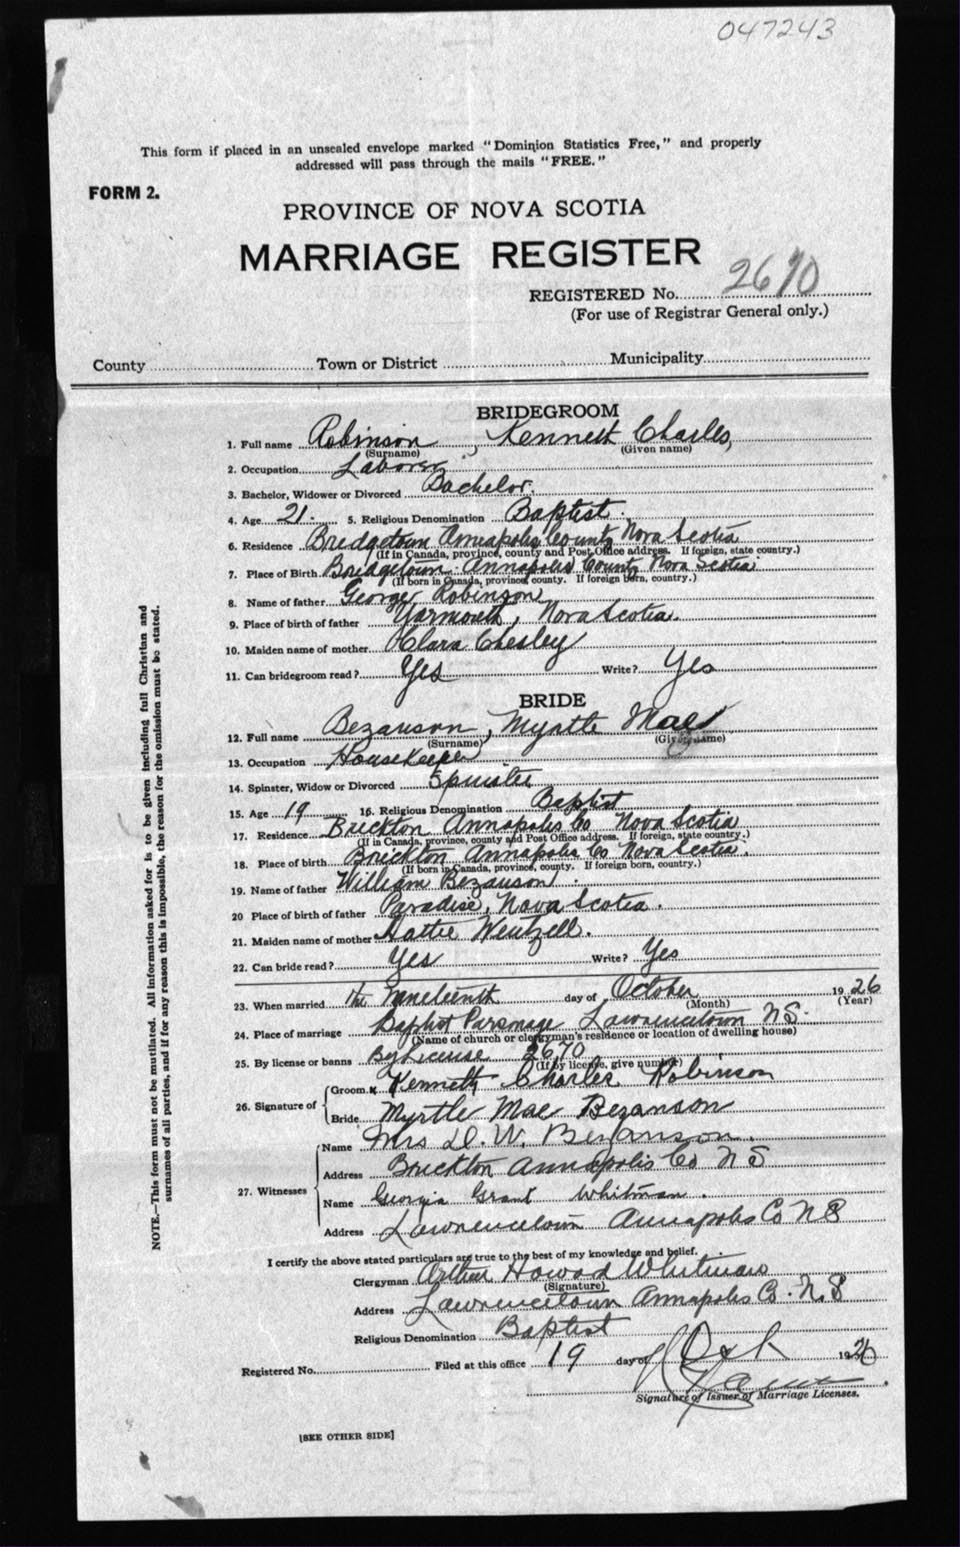 047243
This form if placed in an unsealed envelope marked "Dominion Statistics Free," and properly
addressed will pass through the mails "FREE."
FORM 2.
PROVINCE OF NOVA SCOTIA
MARRIAGE REGISTER
REGISTERED No. 2670
(For use of Registrar General only.)
County Town or District Municipality
BRIDEGROOM
1. Full name Robinson, Kenneth Charles,
(Surname) (Given name)
2. Occupation Laborer
3. Bachelor, Widower or Divorced Bachelor.
4. Age 21. 5. Religious Denomination Baptist.
6. Residence Bridgetown Annapolis County Nova Scotia
(If in Canada, province, county and Post Office address. If foreign, state country.)
7. Place of Birth Bridgetown Annapolis County Nova Scotia
(If born in Canada, province, county. If foreign born, country.)
8. Name of father George Robinson
9. Place of birth of father Yarmouth, Nova Scotia.
10. Maiden name of mother Clara Chesley
11. Can bridegroom read? Yes Write? Yes
BRIDE
12. Full name Bezanson, Myrtle Mae
(Surname) (Given name)
13. Occupation Housekeeper
14. Spinster, Widow or Divorced Spinster
15. Age 19 16. Religious Denomination Baptist
17. Residence Brickton Annapolis Co Nova Scotia
(If in Canada, province, county and Post Office address. If foreign, state country.)
18. Place of birth Brickton Annapolis Co Nova Scotia.
(If born in Canada, province, county. If foreign born, country.)
19. Name of father William Bezanson
20 Place of birth of father Paradise, Nova Scotia.
21. Maiden name of mother Hattie Wentzell.
22. Can bride read? Yes Write? Yes
23. When married the nineteenth day of October 1926
(Month) (Year)
24. Place of marriage Baptist Parsonage Lawrencetown NS.
(Name of church or clergyman's residence or location of dwelling house)
25. By license or banns By License 2670
(If by license, give number)
26. Signature of Groom x Kenneth Charles Robinson
Bride Myrtle Mae Bezanson
27. Witnesses Name Mrs D. W. Bezanson.
Address Brickton Annapolis Co N S
Name Georgia Grant Whitman.
Address Lawrencetown Annapolis Co N S
I certify the above stated particulars are true to the best of my knowledge and belief.
Clergyman Arthur Howard Whitman
(Signature)
Address Lawrencetown Annapolis Co. N.S
Religious Denomination Baptist
Registered No. Filed at this office 19 day of Oct 1926
Signature of Issuer of Marriage Licenses.
[SEE OTHER SIDE]
NOTE.—This form must not be mutilated. All information asked for is to be given including full Christian and
surnames of all parties, and if for any reason this is impossible, the reason for the omission must be stated.